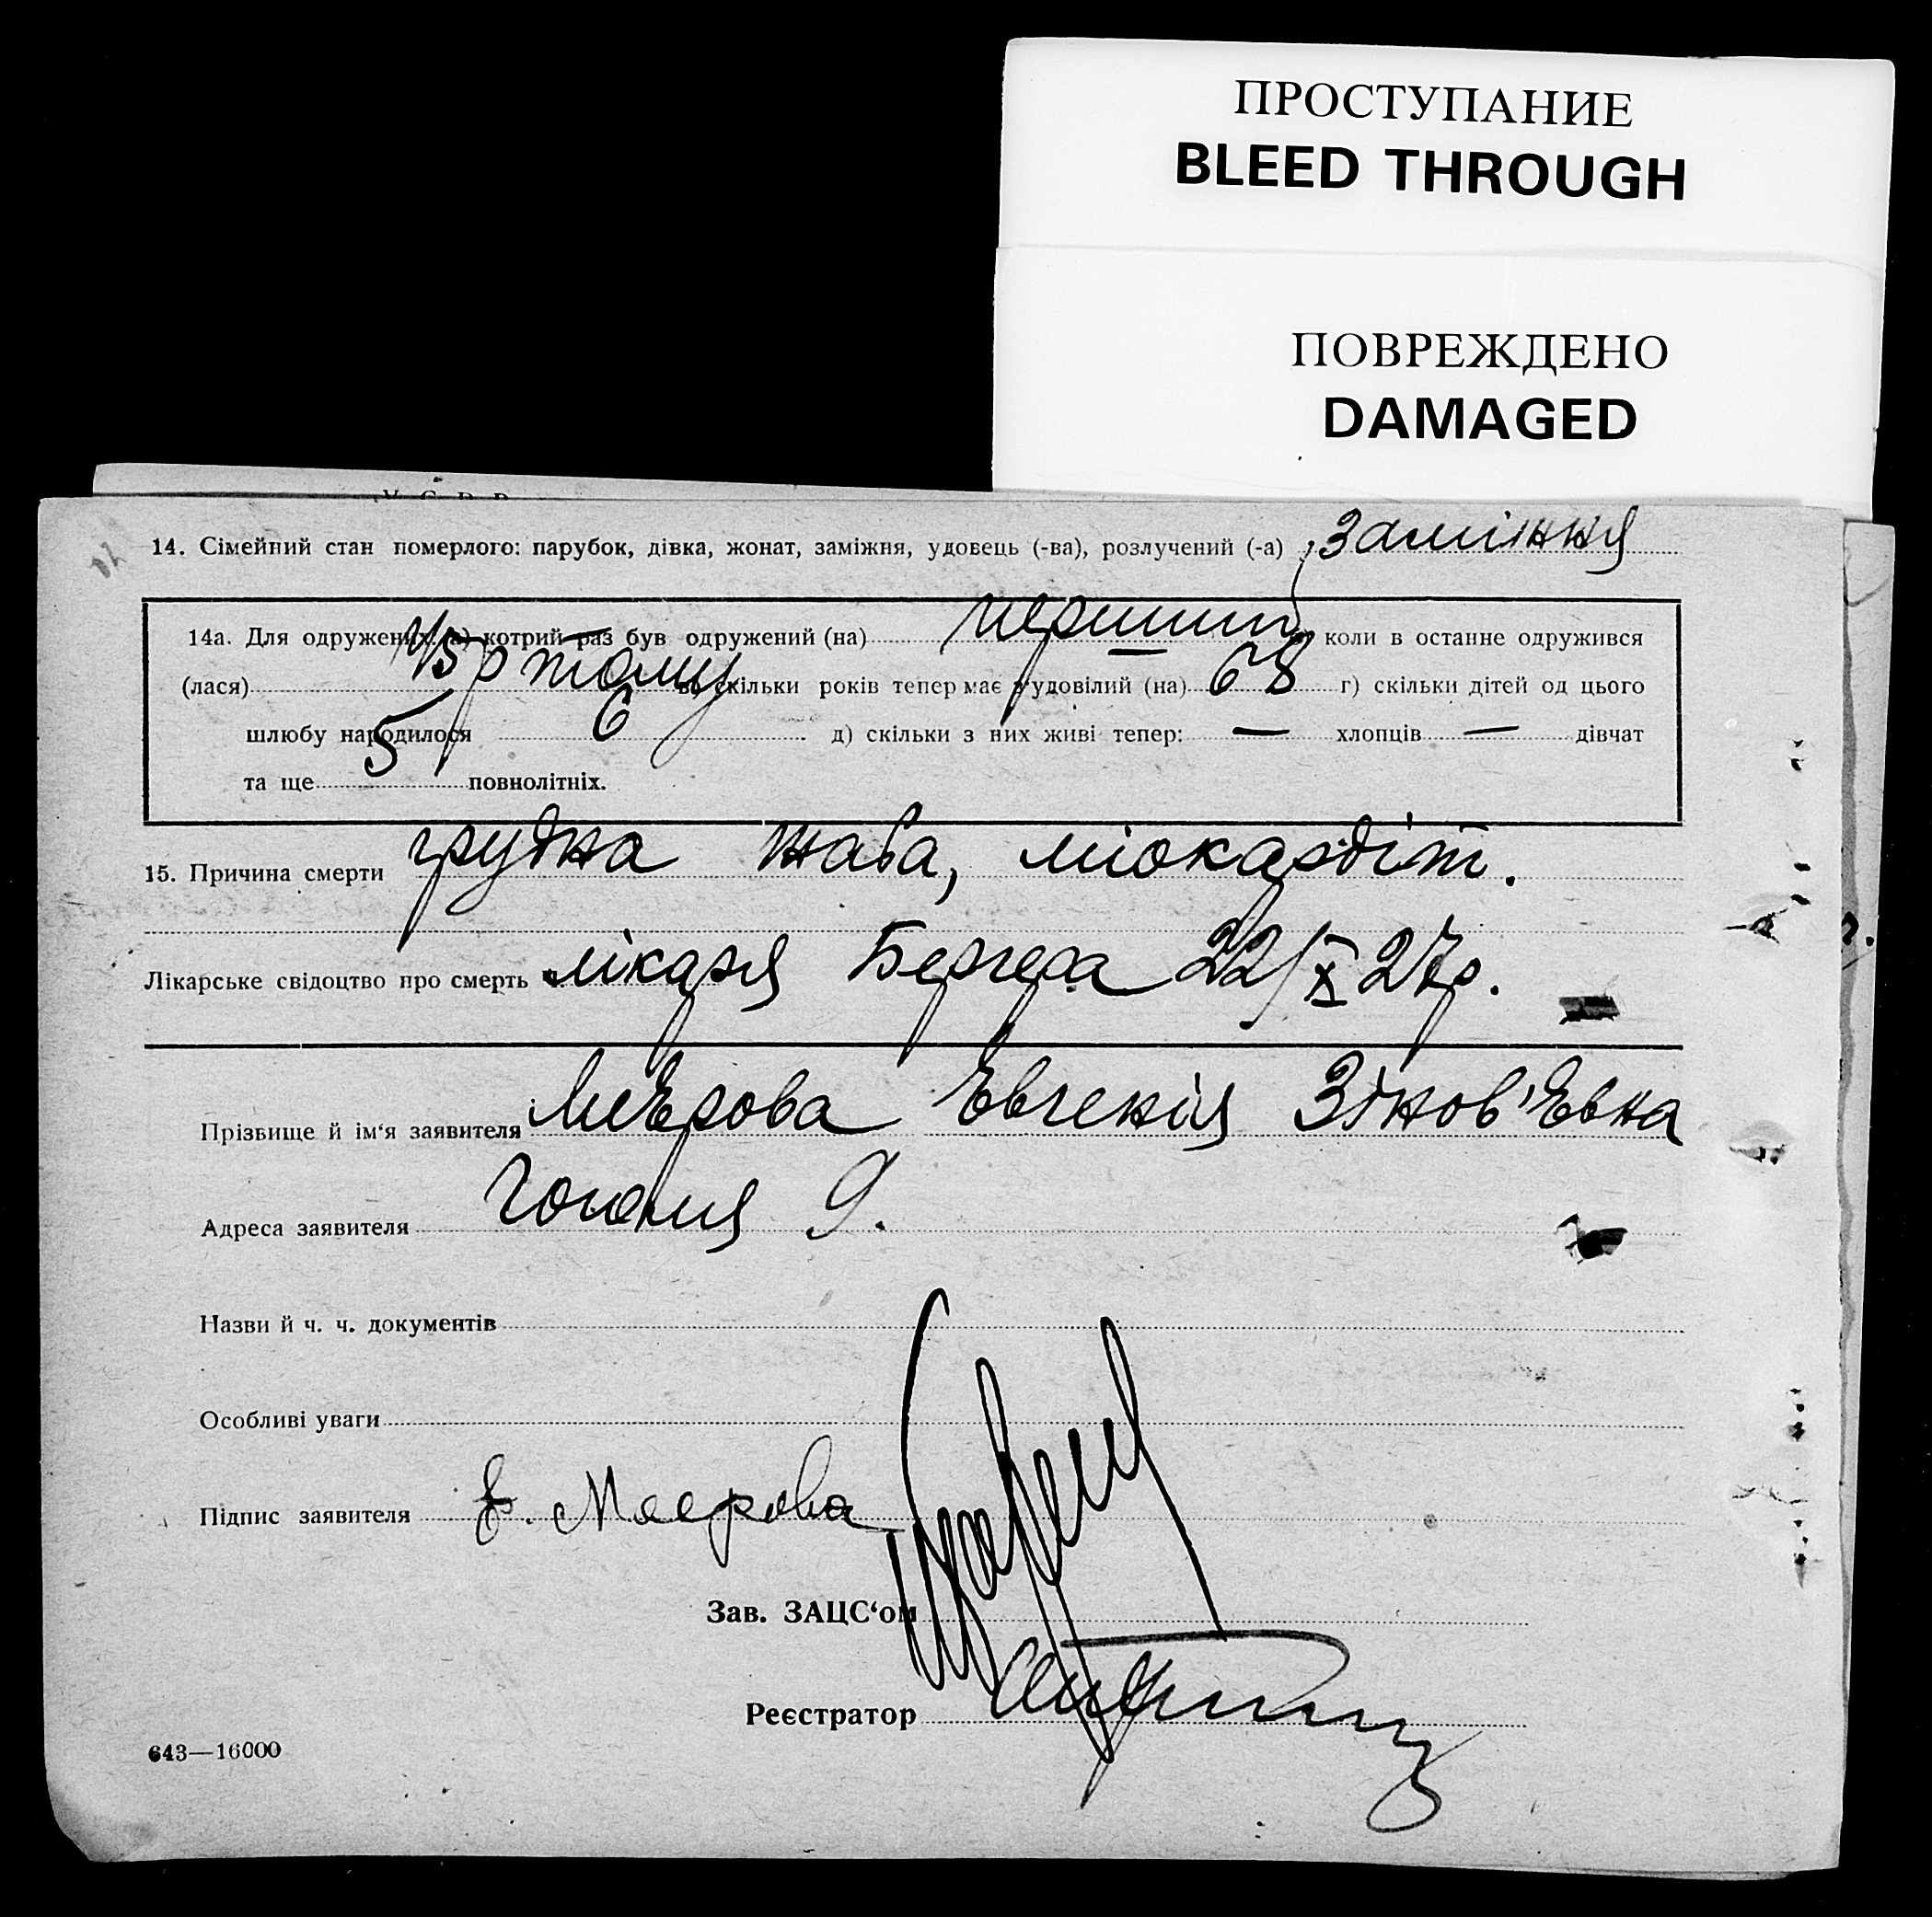 ПРОСТУПАНИЕ
BLEED THROUGH
ПОВРЕЖДЕНО
DAMAGED
14. Сімейний стан померлого: парубок, дівка, жонат, заміжня, удовець (-ва), розлучений (-а) заміжня
14а. Для одружених: а) котрий раз був одружений (на) перший коли в останнє одружився
(лася) 45 р тому в) скільки років тепер має удовілий (на) 68 г) скільки дітей од цього
шлюбу народилося 6 д) скільки з них живі тепер: — хлопців — дівчат
та ще 5 повнолітніх.
15. Причина смерти грудна жаба, міокардіт.
Лікарське свідоцтво про смерть лікаря Бергера 22/X 27р.
Прізвище й ім‘я заявителя Меєрова Євгенія Зінов'євна
Адреса заявителя Гоголя 9.
Назви й ч. ч. документів
Особливі уваги
Підпис заявителя Е. Меерова
Зав. ЗАЦС‘ом
Реєстратор
643—16000